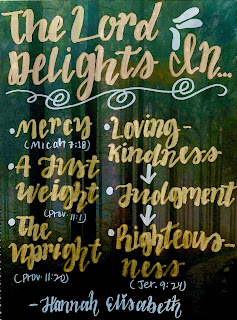 The Lord
Delights In...
•Mercy
(Micah 7:18)
•A Just
Weight
(Prov. 11:1)
•The
Upright
(Prov. 11:20)
•Loving-
kindness
Judgment
Righteous-
ness
(Jer. 9:24)
-Hannah Elisabeth